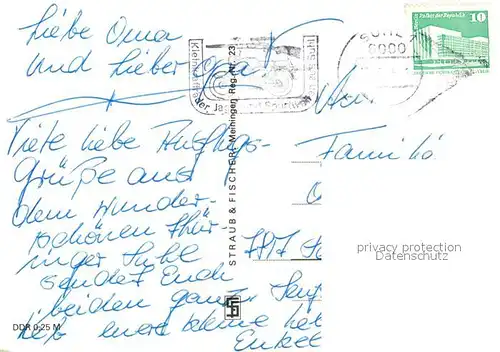 Liebe Oma
und lieber Opa!
Viele liebe Ausflugs-
Grüße aus
dem wunder-
schönen Thür-
inger Suhl
sendet Euch
beiden ganz
lieb eure kleine
Enkel
An
Famili
7817
SUHL
6000
Palast der Republik
10
STRAUB & FISCHER, Meiningen Reg.-Nr. 23
DDR 0-25 M
privacy protection
Datenschutz